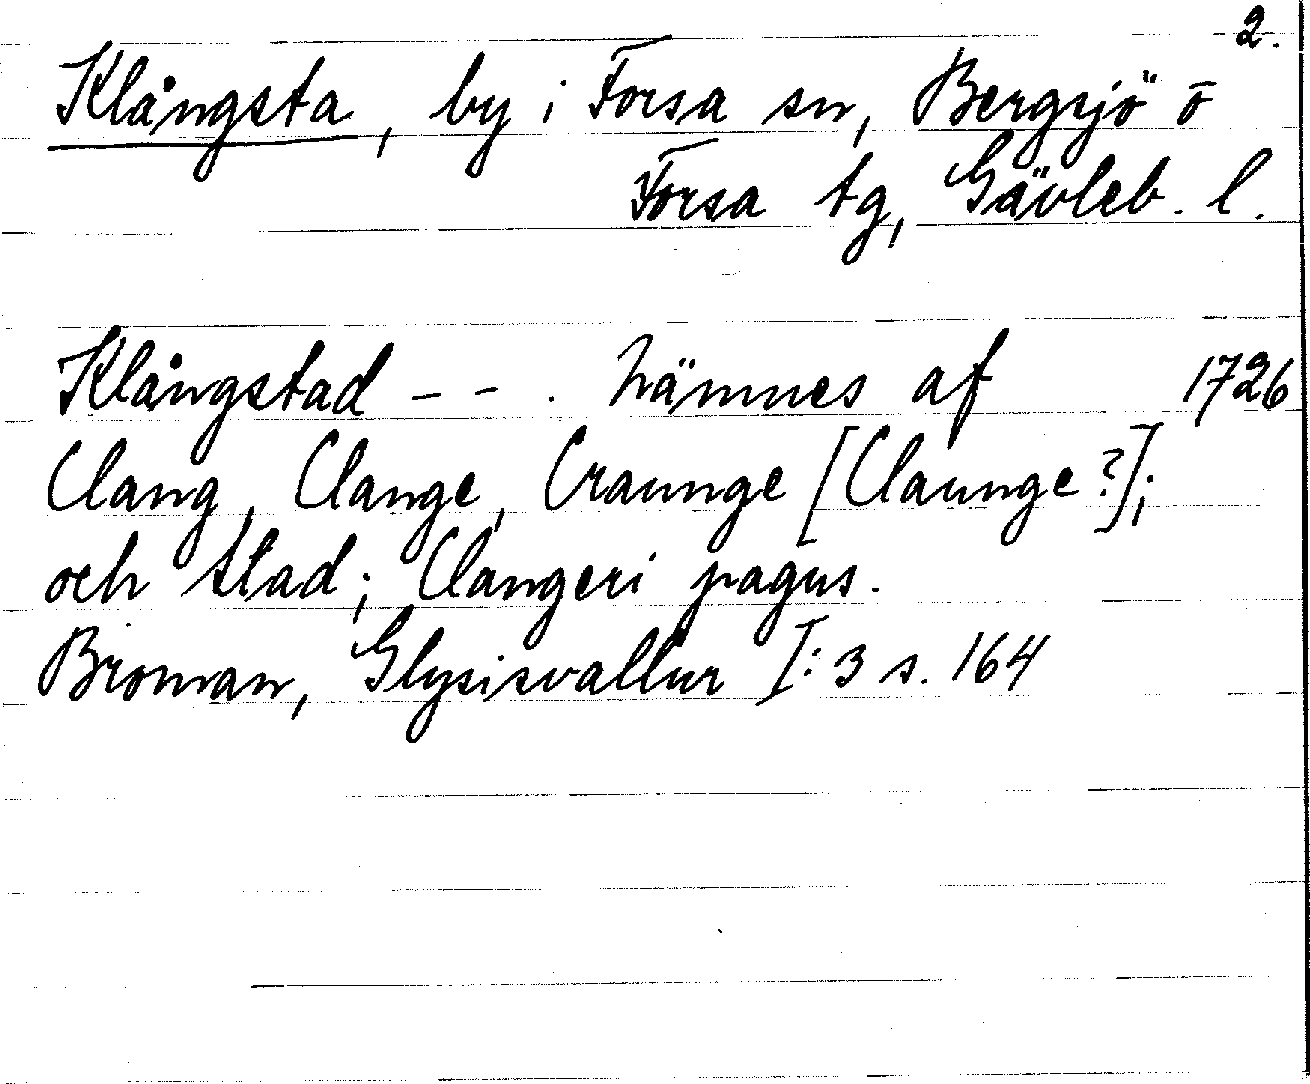 2.
Klångsta, by i Forsa sn, Bergsjö o
Forsa tg, Gävleb. l.
Klångstad - - . nämnes af 1726
Clang, Clange, Craunge [Claunge?];
och stad; Clangeri pagus.
Broman, Glysisvallur I:3 s. 164